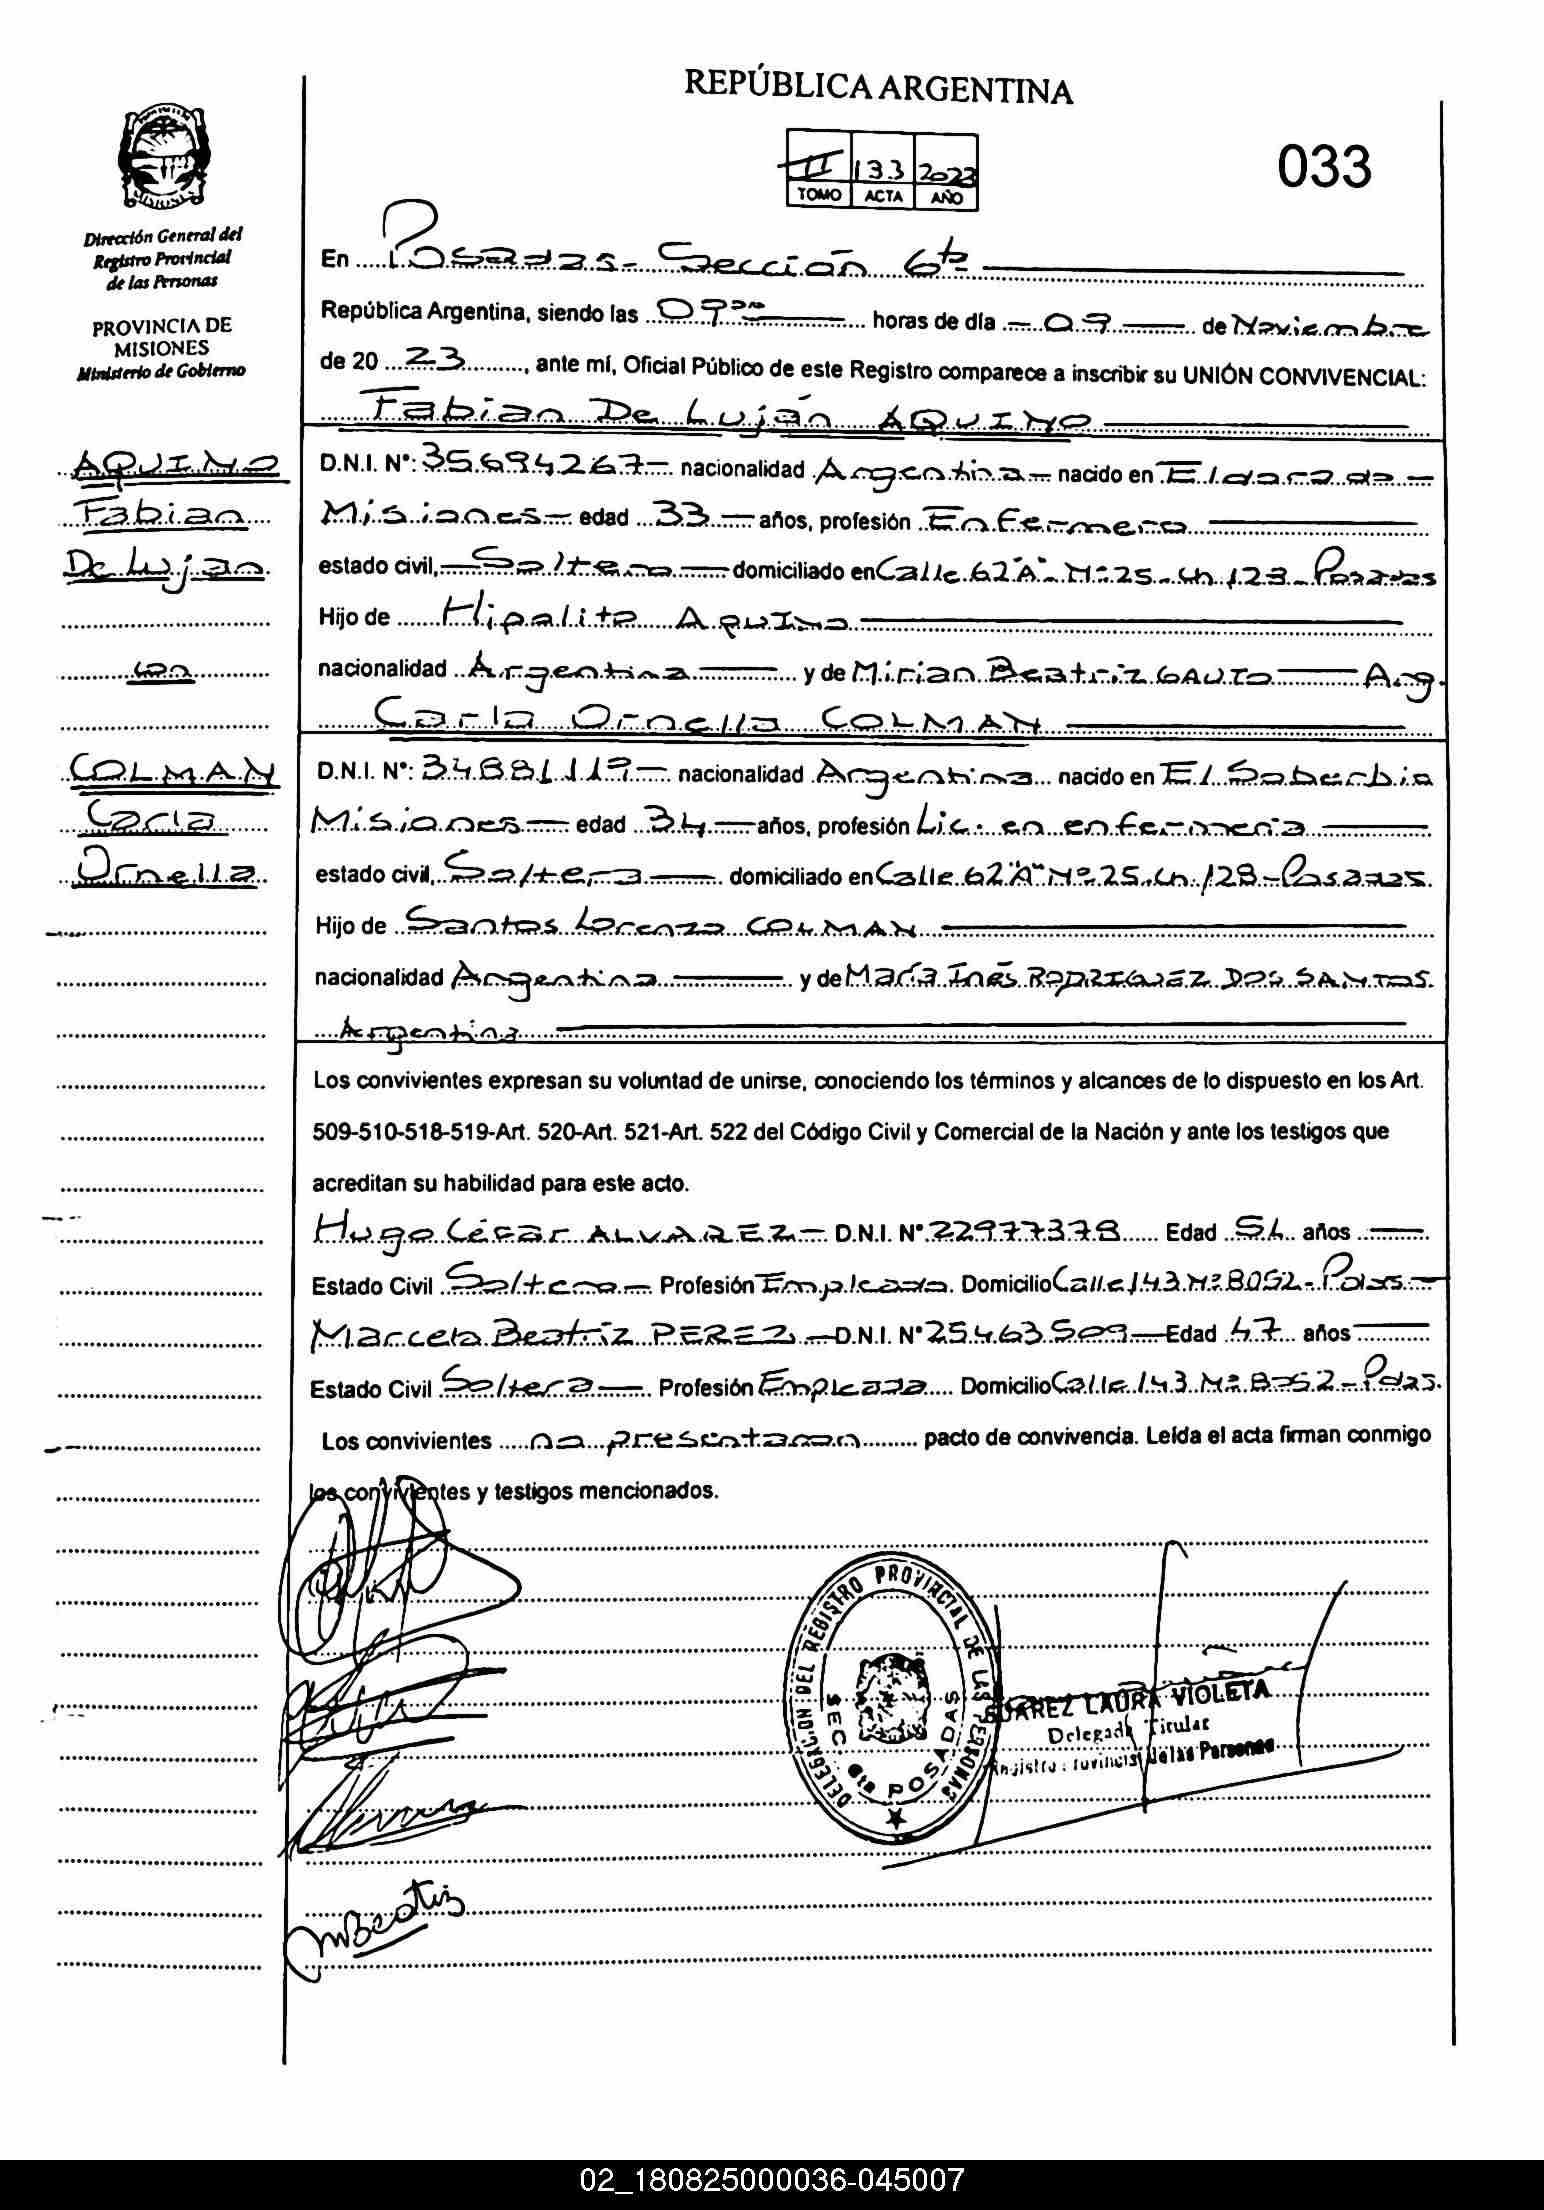 REPÚBLICA ARGENTINA
II 133 2023
TOMO ACTA AÑO
033
Dirección General del
Registro Provincial
de las Personas
PROVINCIA DE
MISIONES
Ministerio de Gobierno
En Posadas - Sección 6ta
República Argentina, siendo las 09 horas de día 09 de Noviembre
de 2023, ante mí, Oficial Público de este Registro comparece a inscribir su UNIÓN CONVIVENCIAL:
Fabian De Luján AQUINO
AQUINO
Fabian
De Lujan
con
COLMAN
Carla
Ornella
D.N.I. N°: 35694267 nacionalidad Argentina nacido en Eldorado
Misiones edad 33 años, profesión Enfermero
estado civil, Soltero domiciliado en Calle 62"A" N° 25 ch 128 Posadas
Hijo de Hipolito AQUINO
nacionalidad Argentina y de Mirian Beatriz GAUTO Arg.
Carla Ornella COLMAN
D.N.I. N°: 34881119 nacionalidad Argentina nacido en El Soberbio
Misiones edad 34 años, profesión Lic. en enfermeria
estado civil, Soltera domiciliado en Calle 62"A" N° 25 ch 128 - Posadas.
Hijo de Santos Lorenzo COLMAN
nacionalidad Argentina y de María Inés RODRIGUEZ DOS SANTOS.
Argentina
Los convivientes expresan su voluntad de unirse, conociendo los términos y alcances de lo dispuesto en los Art.
509-510-518-519-Art. 520-Art. 521-Art. 522 del Código Civil y Comercial de la Nación y ante los testigos que
acreditan su habilidad para este acto.
Hugo César ALVAREZ D.N.I. N° 22977378 Edad 51 años
Estado Civil Soltero Profesión Empleado. Domicilio Calle 143 N° 8052 - Pdas.
Marcela Beatriz PEREZ D.N.I. N° 25.463.509 Edad 47 años
Estado Civil Soltera Profesión Empleada Domicilio Calle 143 N° 8052 - Pdas.
Los convivientes no presentaron pacto de convivencia. Leída el acta firman conmigo
los convivientes y testigos mencionados.
DELEGACION DEL REGISTRO PROVINCIAL DE LAS PERSONAS
SEC. 6ta POSADAS
SUAREZ LAURA VIOLETA
Delegada Titular
Registro Provincial de las Personas
02_180825000036-045007